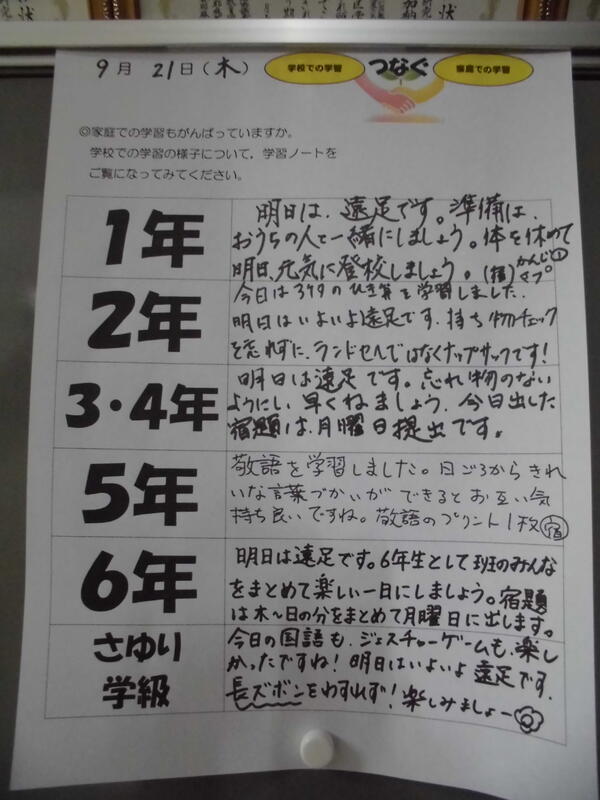 9月 21日(木)
学校での学習 つなぐ 家庭での学習
◎家庭での学習もがんばっていますか。
学校での学習の様子について,学習ノートを
ご覧になってみてください。
1年
明日は、遠足です。準備は、
おうちの人と一緒にしましょう。体を休めて
明日、元気に登校しましょう。(宿)かんじ①マップ
2年
今日は3ケタのひき算を学習しました。
明日はいよいよ遠足です。持ち物チェック
を忘れずに、ランドセルではなくナップサックです!
3・4年
明日は遠足です。忘れ物のない
ようにし、早くねましょう。今日出した
宿題は、月曜日提出です。
5年
敬語を学習しました。日ごろからきれ
いな言葉づかいができるとお互い気
持ち良いですね。敬語のプリント1枚宿
6年
明日は遠足です。6年生として班のみんな
をまとめて楽しい一日にしましょう。宿題
は木~日の分をまとめて月曜日に出します。
さゆり
学級
今日の国語も、ジェスチャーゲームも、楽し
かったですね!明日はいよいよ遠足です。
長ズボンをわすれず!楽しみましょー